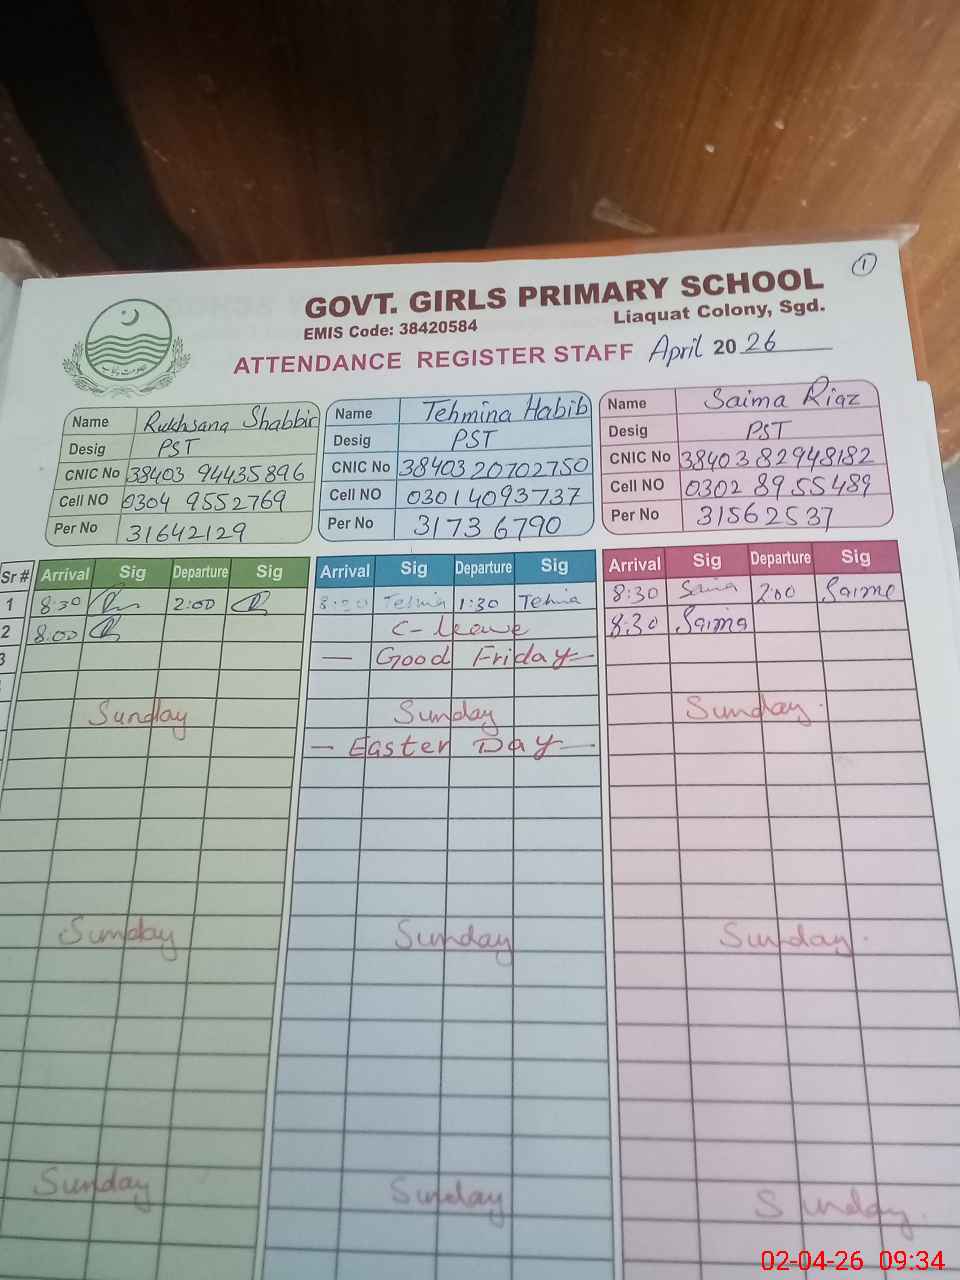 1
GOVT. GIRLS PRIMARY SCHOOL
EMIS Code: 38420584 Liaquat Colony, Sgd.
ATTENDANCE REGISTER STAFF April 2026
Name Rukhsana Shabbir Name Tehmina Habib Name Saima Riaz
Desig PST Desig PST Desig PST
CNIC No 38403 94435896 CNIC No 38403 20702750 CNIC No 38403 82948182
Cell NO 0304 9552769 Cell NO 0301 4093737 Cell NO 0302 8955489
Per No 31642129 Per No 31736790 Per No 31562537
Sr # Arrival Sig Departure Sig Arrival Sig Departure Sig Arrival Sig Departure Sig
1 8:30 2:00 8:30 Tehmina 1:30 Tehmina 8:30 Saima 2:00 Saima
2 8:00 C-leave 8:30 Saima
3 — Good Friday —
Sunday Sunday Sunday
— Easter Day —
Sunday Sunday Sunday
Sunday Sunday Sunday
02-04-26 09:34